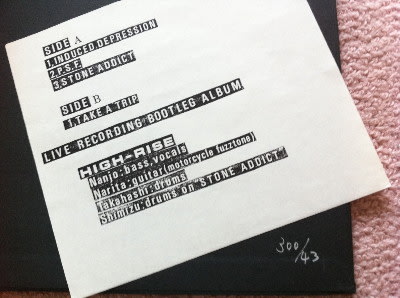 SIDE A
1.INDUCED DEPRESSION
2.P.S.F.
3.STONE ADDICT
SIDE B
1.TAKE A TRIP
LIVE RECORDING BOOTLEG ALBUM
HIGH-RISE
Nanjo:bass,vocals
Narita:guitar(motorcycle fuzztone)
Takahashi:drums
Shimizu:drums on "STONE ADDICT"
300/43